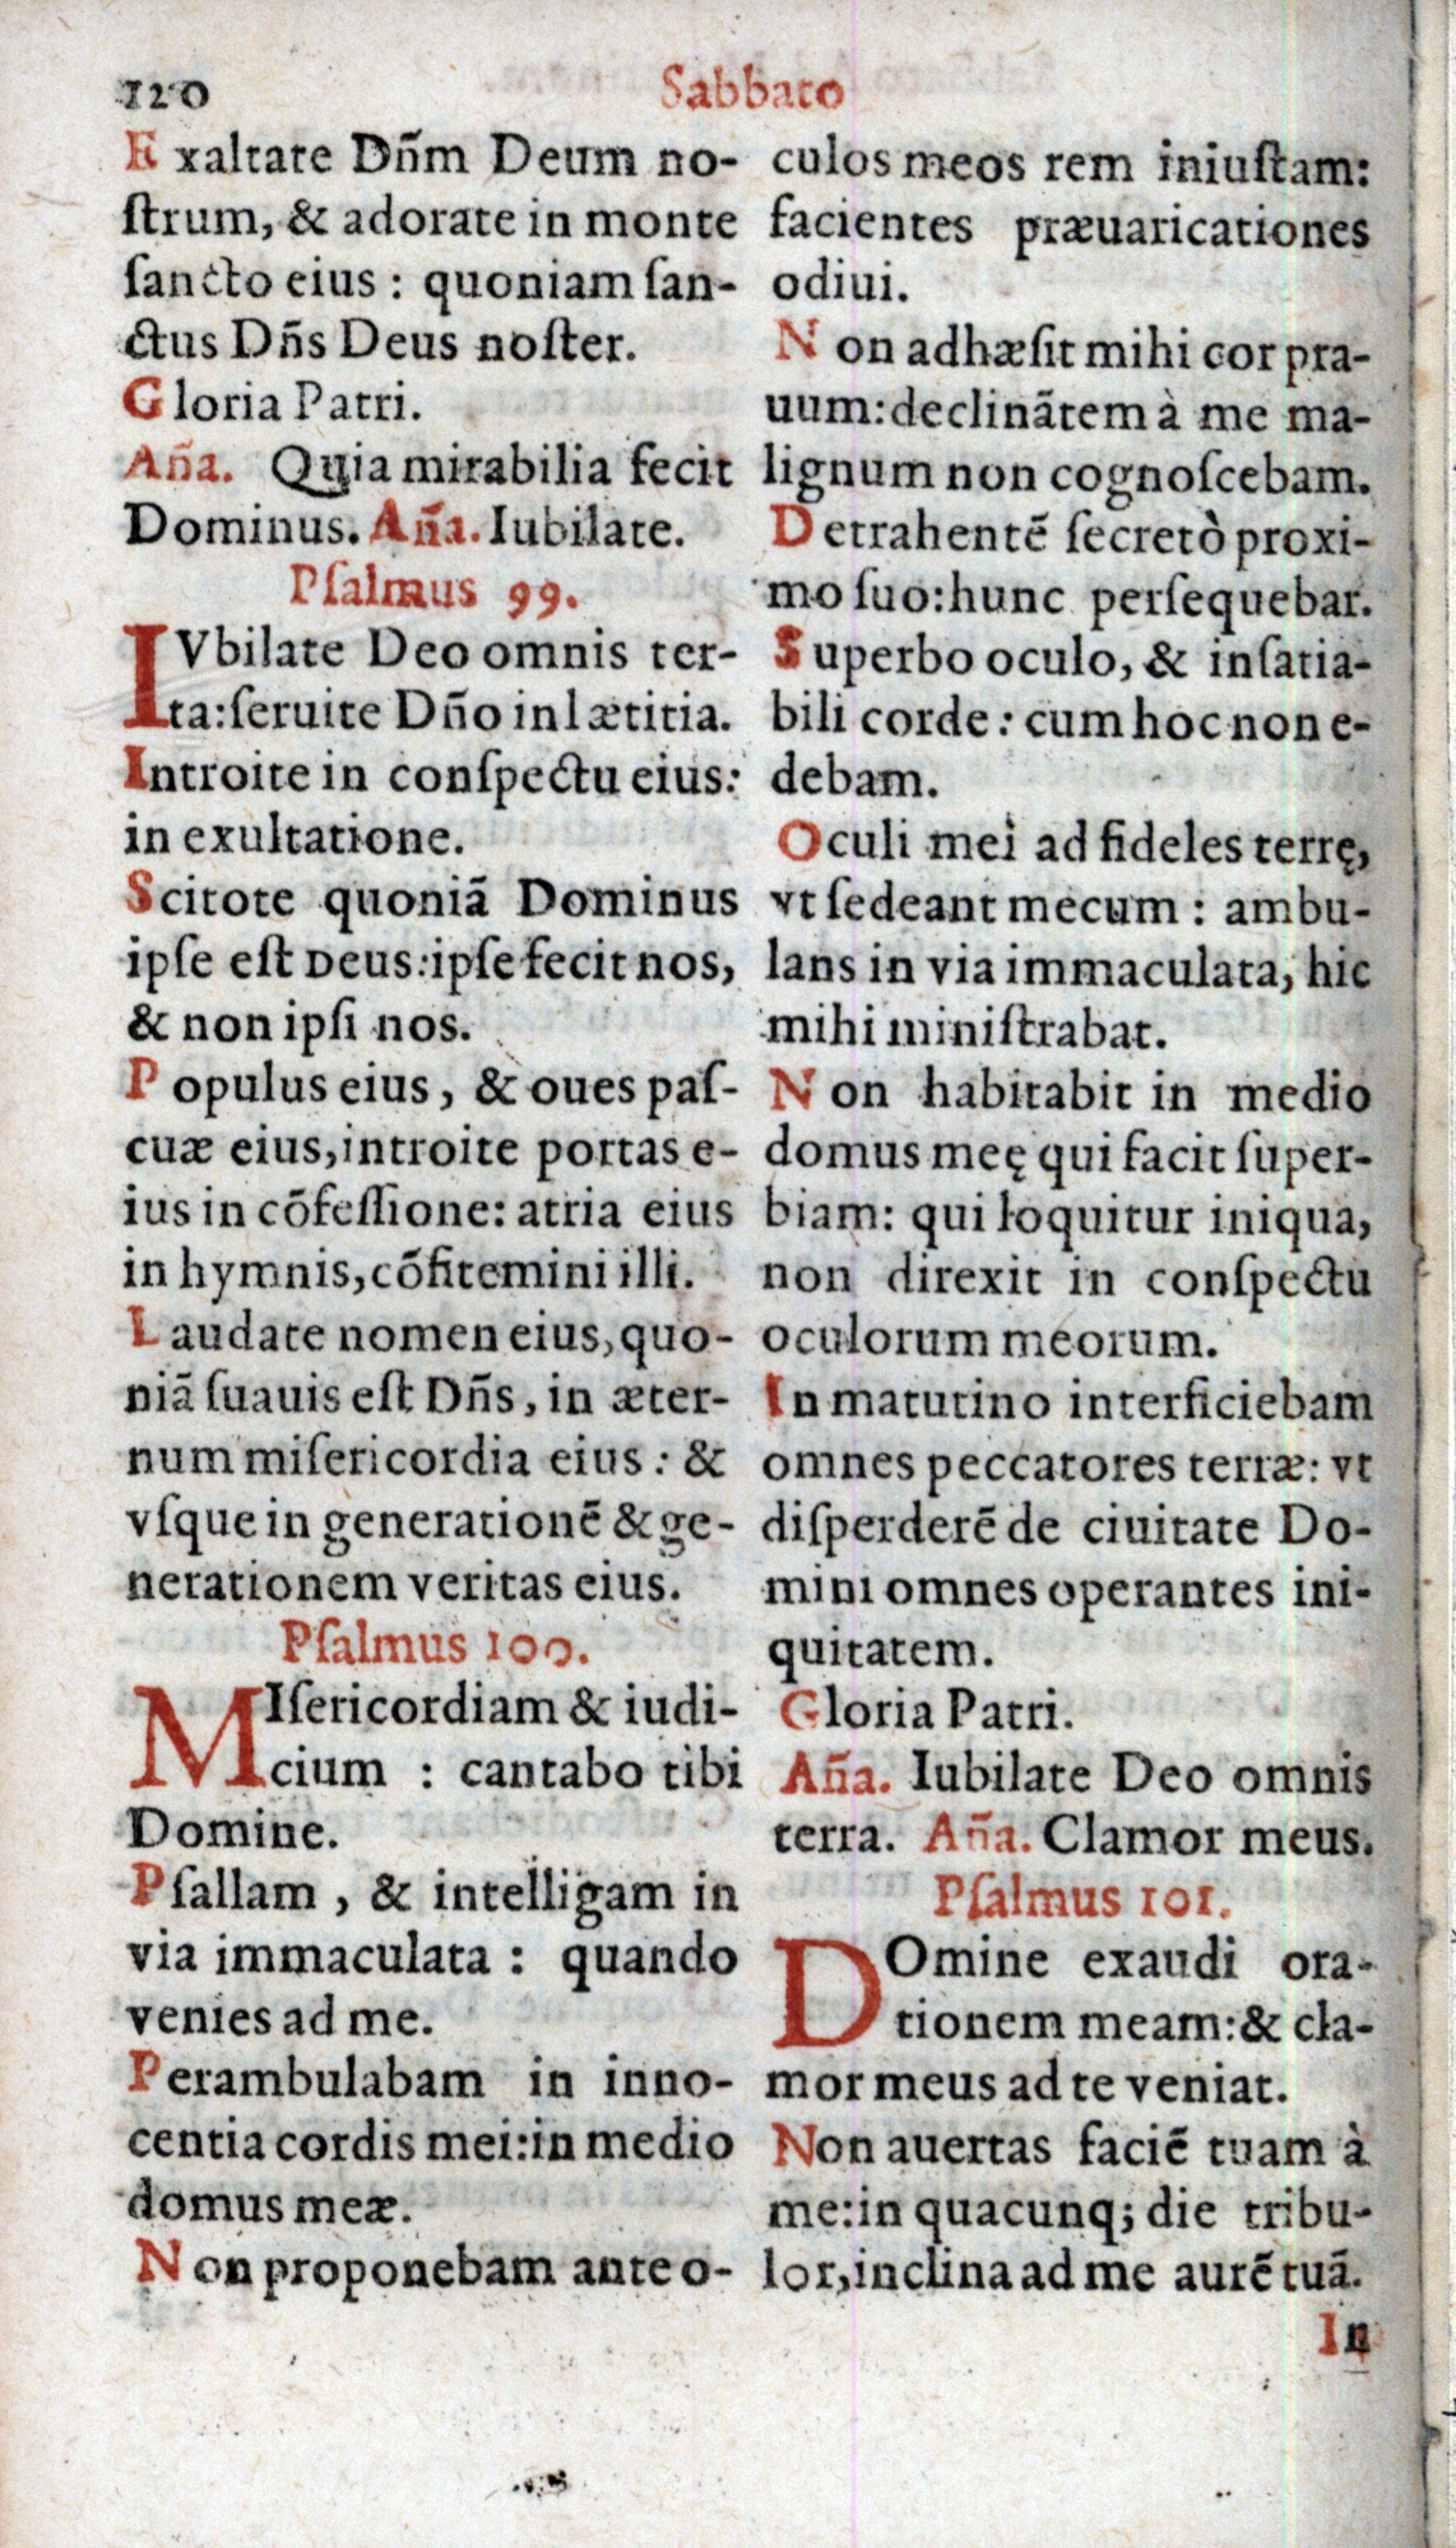 120
Sabbato
Exaltate Dñm Deum no-
ſtrum, & adorate in monte
ſancto eius : quoniam ſan-
ctus Dñs Deus noſter.
Gloria Patri.
Aña. Quia mirabilia fecit
Dominus. Aña. Iubilate.
Pſalmus 99.
IVbilate Deo omnis ter-
ra: ſeruite Dño in lætitia.
Introite in conſpectu eius:
in exultatione.
Scitote quoniã Dominus
ipſe eſt Deus: ipſe fecit nos,
& non ipſi nos.
Populus eius, & oues paſ-
cuæ eius, introite portas e-
ius in cõfeſſione: atria eius
in hymnis, cõfitemini illi.
Laudate nomen eius, quo-
niã ſuauis eſt Dñs, in æter-
num miſericordia eius : &
vſque in generationẽ & ge-
nerationem veritas eius.
Pſalmus 100.
MIſericordiam & iudi-
cium : cantabo tibi
Domine.
Pſallam , & intelligam in
via immaculata : quando
venies ad me.
Perambulabam in inno-
centia cordis mei: in medio
domus meæ.
Non proponebam ante o-
culos meos rem iniuſtam:
facientes præuaricationes
odiui.
Non adhæſit mihi cor pra-
uum: declinãtem à me ma-
lignum non cognoſcebam.
Detrahentẽ ſecretò proxi-
mo ſuo: hunc perſequebar.
Superbo oculo, & inſatia-
bili corde : cum hoc non e-
debam.
Oculi mei ad fideles terrę,
vt ſedeant mecum : ambu-
lans in via immaculata, hic
mihi miniſtrabat.
Non habitabit in medio
domus meę qui facit ſuper-
biam: qui loquitur iniqua,
non direxit in conſpectu
oculorum meorum.
In matutino interficiebam
omnes peccatores terræ: vt
diſperderẽ de ciuitate Do-
mini omnes operantes ini-
quitatem.
Gloria Patri.
Aña. Iubilate Deo omnis
terra. Aña. Clamor meus.
Pſalmus 101.
DOmine exaudi ora-
tionem meam: & cla-
mor meus ad te veniat.
Non auertas faciẽ tuam à
me: in quacunq; die tribu-
lor, inclina ad me aurẽ tuã.
In